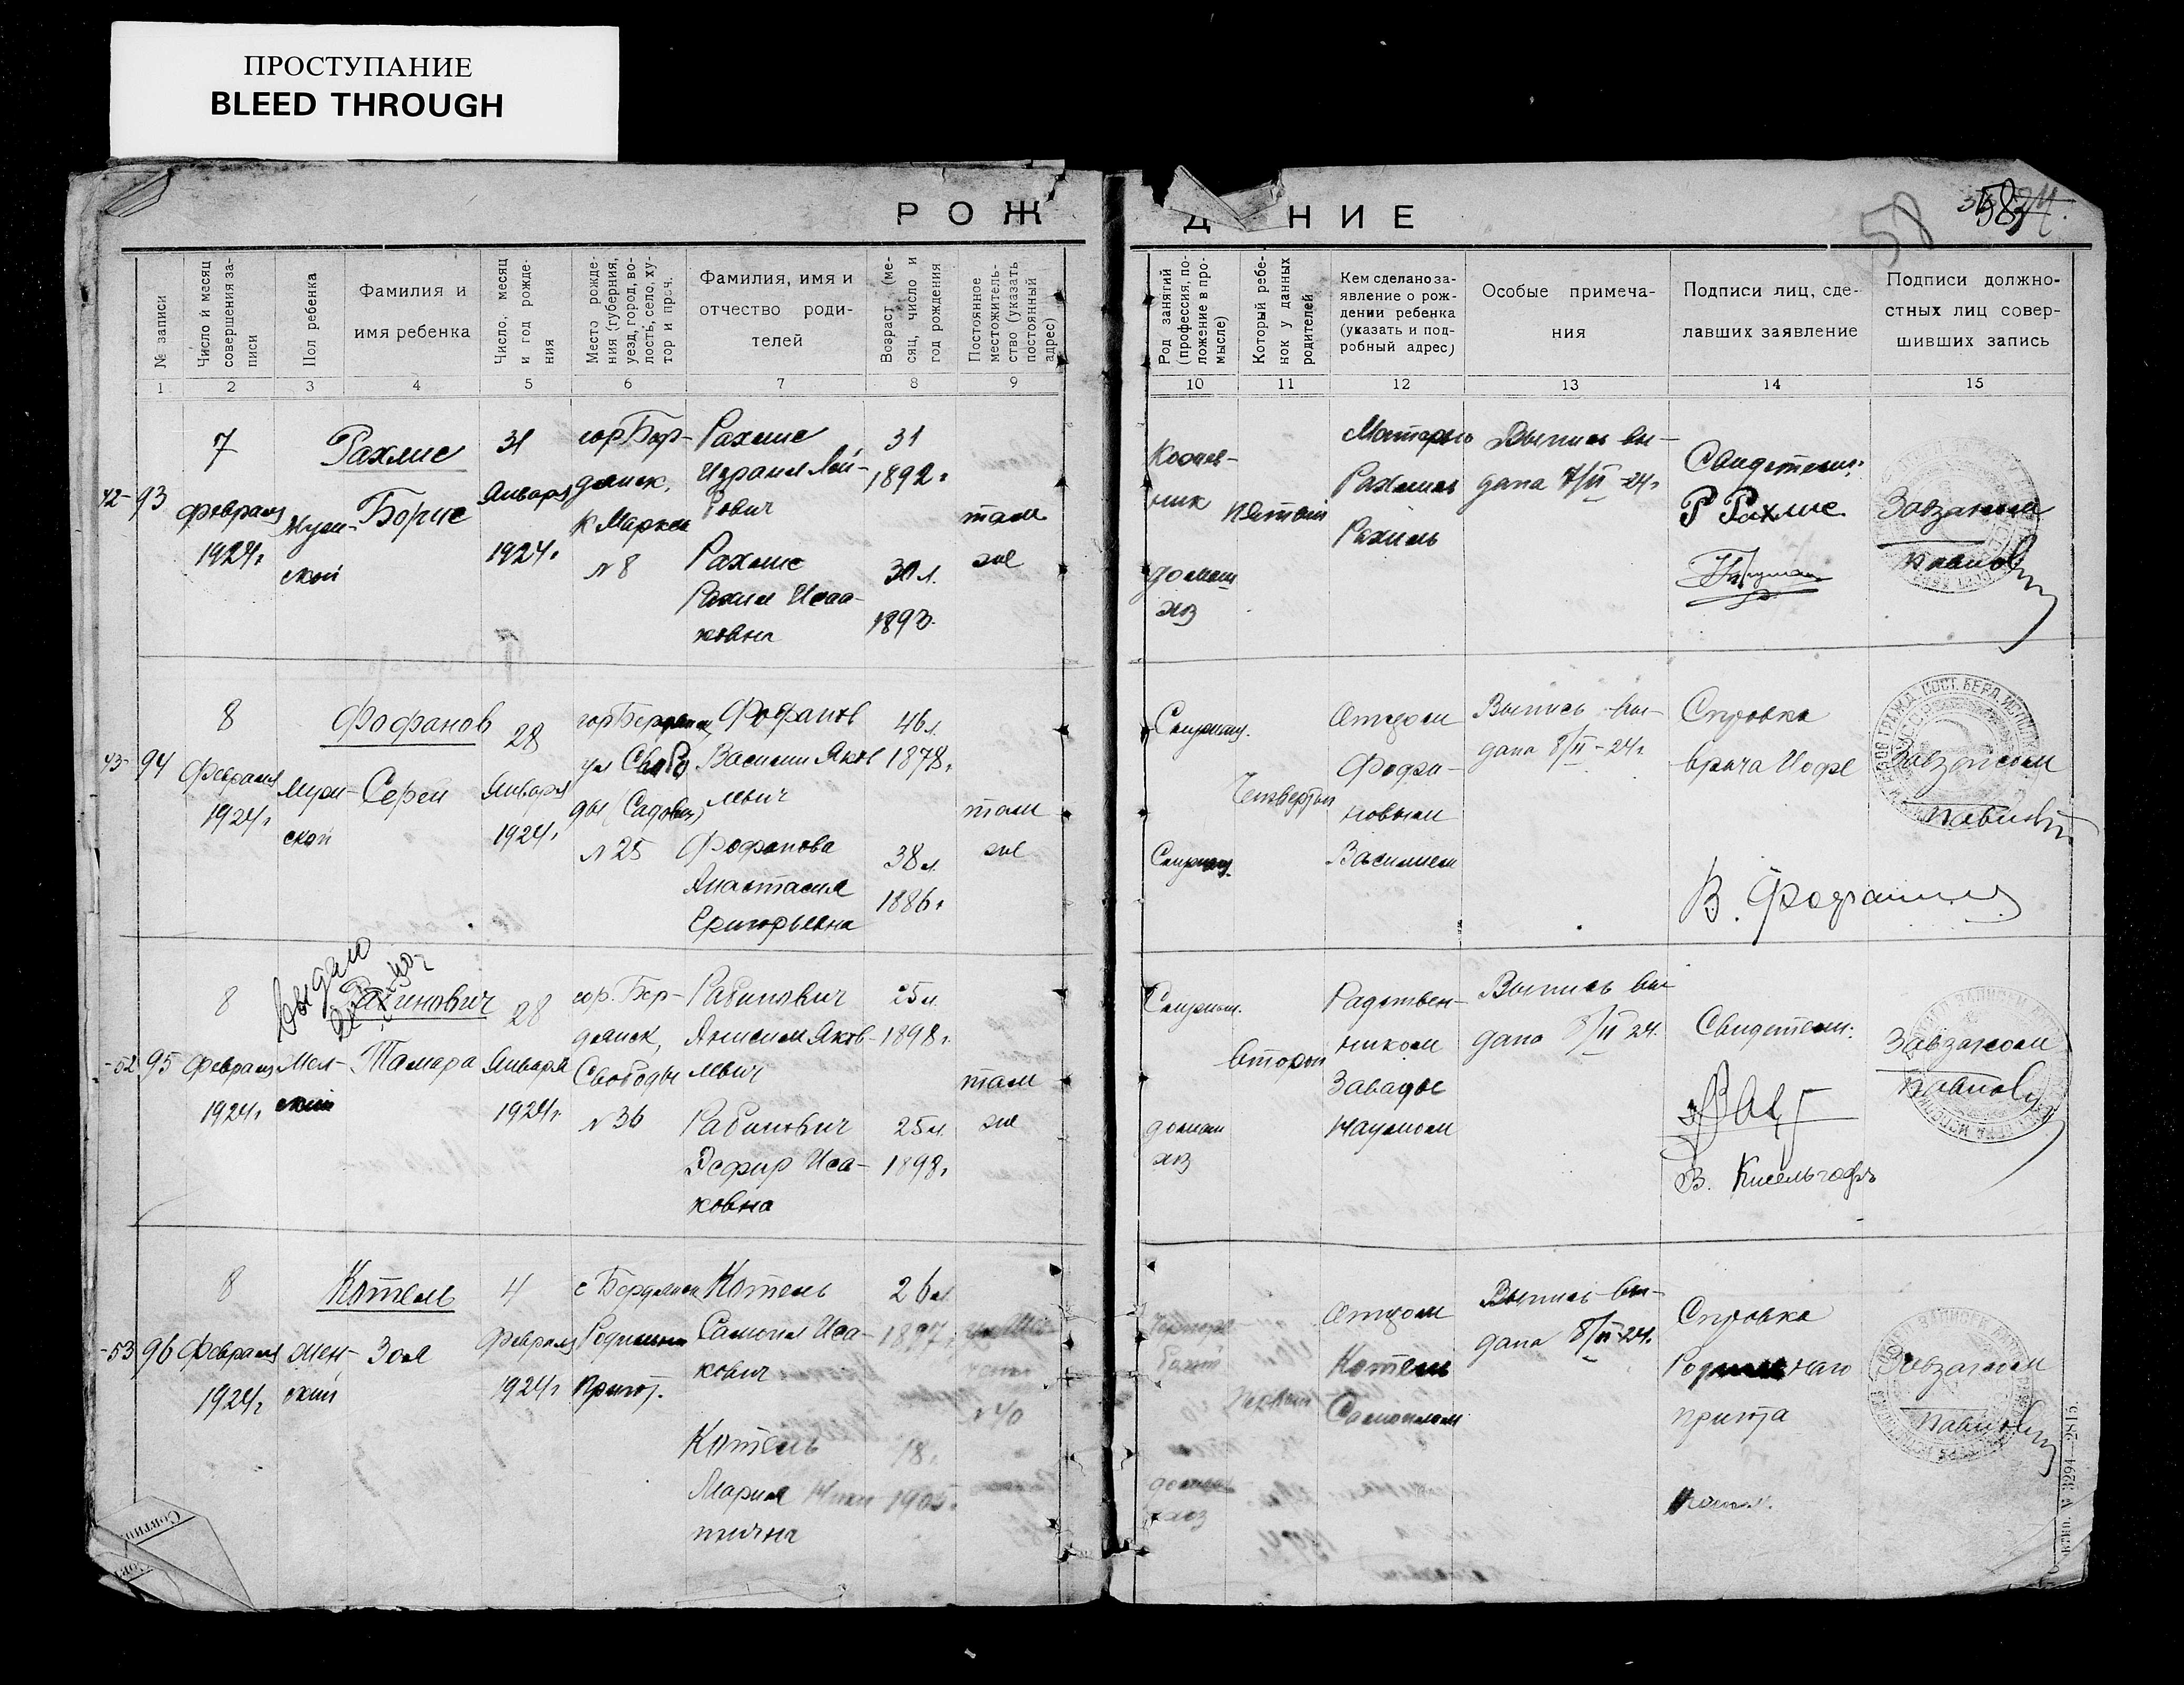 ПРОСТУПАНИЕ
BLEED THROUGH
РОЖДЕНИЕ
58
№ записи
Число и месяц совершения записи
Пол ребенка
Фамилия и имя ребенка
Число, месяц и год рождения
Место рождения (губерния, уезд, город, волость, село, хутор и проч.
Фамилия, имя и отчество родителей
Возраст (месяц, число и год рождения
Постоянное местожительство (указать постоянный адрес)
Род занятий (профессия, положение в промысле)
Который ребенок у данных родителей
Кем сделано заявление о рождении ребенка (указать и подробный адрес)
Особые примечания
Подписи лиц, сделавших заявление
Подписи должностных лиц совершивших запись
1 2 3 4 5 6 7 8 9 10 11 12 13 14 15
42- 93
7
февраля
1924г
Муж-
ской
Рахлис
Борис
31
Января
1924г
гор Бер-
дянск,
К Маркса
№ 8
Рахлис
Израил Лей-
бович
Рахлис
Рахил Исаа-
ковна
31
1892г
30 л.
1893.
там
же
домаш
хоз
пятый
Матерью
Рахлис
Рахиль
Выпись вы-
дана 7/II-24г
Свидетели:
Р Рахлис
Завзагсом
43- 94
8
Февраля
1924г
Муж-
ской
Фофанов
Сергей
28
Января
1924г
гор Бердянск
ул Свобо
ды (Садовая)
№ 25
Фофанов
Василий Яков
левич
Фофанова
Анастасия
Григорьевна
46 л.
1878г
38 л.
1886г
там
же
Служащ.
Служащ.
Четвертый
Отцом
Фофа-
новым
Василием
Выпись вы-
дана 8/II-24г
Справка
врача Иофе
В. Фофанов
Завзагсом
выдано
-52 95
8
Февраля
1924г
Жен-
ский
Рабинович
Тамара
28
Января
1924г
гор. Бер-
дянск,
Свободы
№ 36
Рабинович
Анисим Яков-
левич
Рабинович
Эсфир Иса-
ковна
25 л.
1898г
25 л.
1898г
там
же
Служащ.
домаш
хоз
второй
Родствен-
ником
Завадье
Наумом
Выпись вы
дана 8/II 24.
Свидетели:
В. Кисельгофъ
Завзагсом
-53 96
8
Февраля
1924г
Жен-
ский
Котель
Зоя
4
Февраля
1924г
г Бердянск
Родильн
Приют.
Котель
Самоил Иса-
кович
Котель
Мария Ники
тична
26 л.
1897г
18г
1905г
№ 40
домаш
хоз
Первый
Отцом
Котель
Самоилом
Выпись вы-
дана 8/II-24г.
Справка
Родильнаго
приюта
Завзагсом
№ 3294—2815.